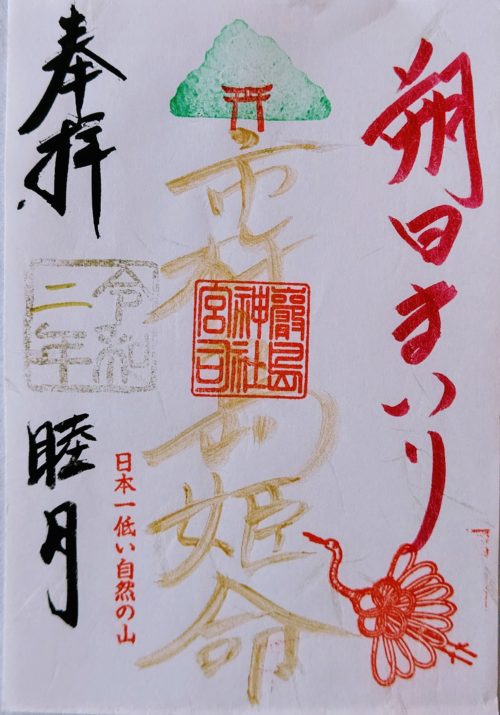 朔日まいり
市杵島姫命
嚴島
神社
宮司
日本一低い自然の山
奉拝
令和
二年
睦月